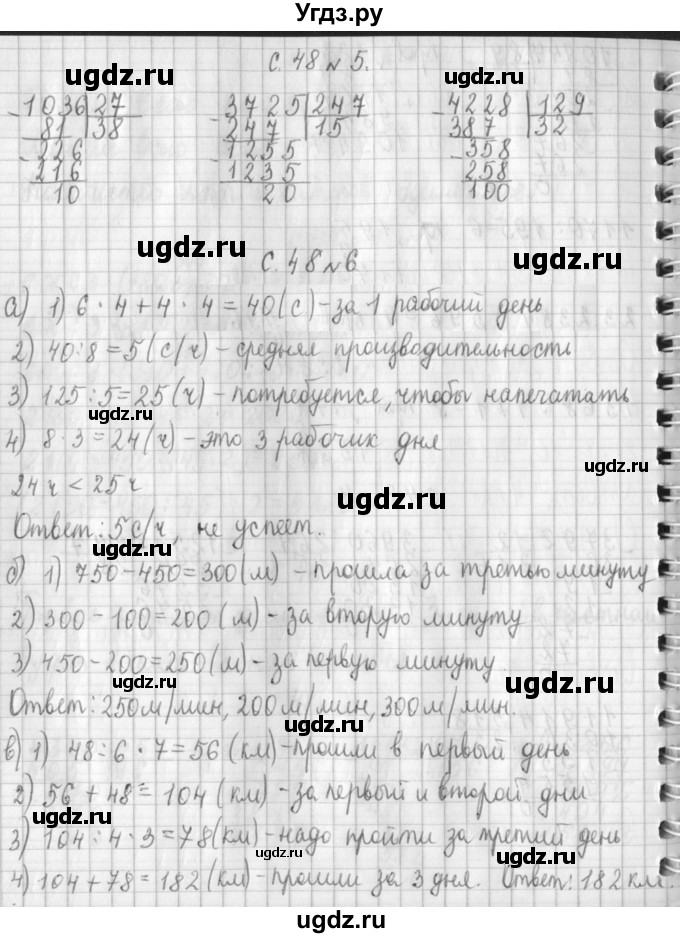 Угдз.ру
с. 48 № 5.
ugdz.ru ugdz.ru
1036 27 3725 247 4228 129
81 38 247 15 387 32
226 1255 358
216 1235 258
10 20 100
ugdz.ru ugdz.ru
с. 48 № 6
ugdz.ru ugdz.ru
а) 1) 6 · 4 + 4 · 4 = 40 (с) – за 1 рабочий день
2) 40 : 8 = 5 (с/ч) – средняя производительность
3) 125 : 5 = 25 (ч) – потребуется, чтобы напечатать
ugdz.ru
4) 8 · 3 = 24 (ч) – это 3 рабочих дня
ugdz.ru
24 ч < 25 ч
ugdz.ru
Ответ: 5 с/ч, не успеет.
ugdz.ru
б) 1) 750 – 450 = 300 (м) – прошла за третью минуту
2) 300 – 100 = 200 (м) – за вторую минуту
3) 450 – 200 = 250 (м) – за первую минуту
ugdz.ru ugdz.ru
Ответ: 250 м/мин, 200 м/мин, 300 м/мин.
ugdz.ru
в) 1) 48 : 6 · 7 = 56 (км) – прошли в первый день
2) 56 + 48 = 104 (км) – за первый и второй дни
ugdz.ru ugdz.ru
3) 104 : 4 · 3 = 78 (км) – надо пройти за третий день
ugdz.ru
4) 104 + 78 = 182 (км) – прошли за 3 дня. Ответ: 182 км.
ugdz.ru